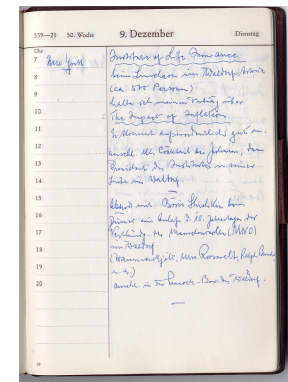 339—21 50. Woche 9. Dezember Dienstag
Uhr
7 New York Institute of Life Insurance
8 beim Luncheon im Waldorf Astoria
9 (ca 500 Personen)
halte ich meinen Vortrag über
10 The Impact of Inflation
11 Er kommt ausserordentlich gut an.
12 anschl. Mr. Cocktail des Johnson, dem
13 Präsident des Institutes in seiner
14 Suite im Waldorf
15 —
Abend mit Boris Shishkin beim
16 Dinner aus Anlass d. 10. Jahrestages der
17 der Menschenrechte (UNO)
im Waldorf
18 Mrs Roosevelt, Ralph Bunche
19 u. a.)
20 anschl. in der Peacock-Bar des Waldorf.
—